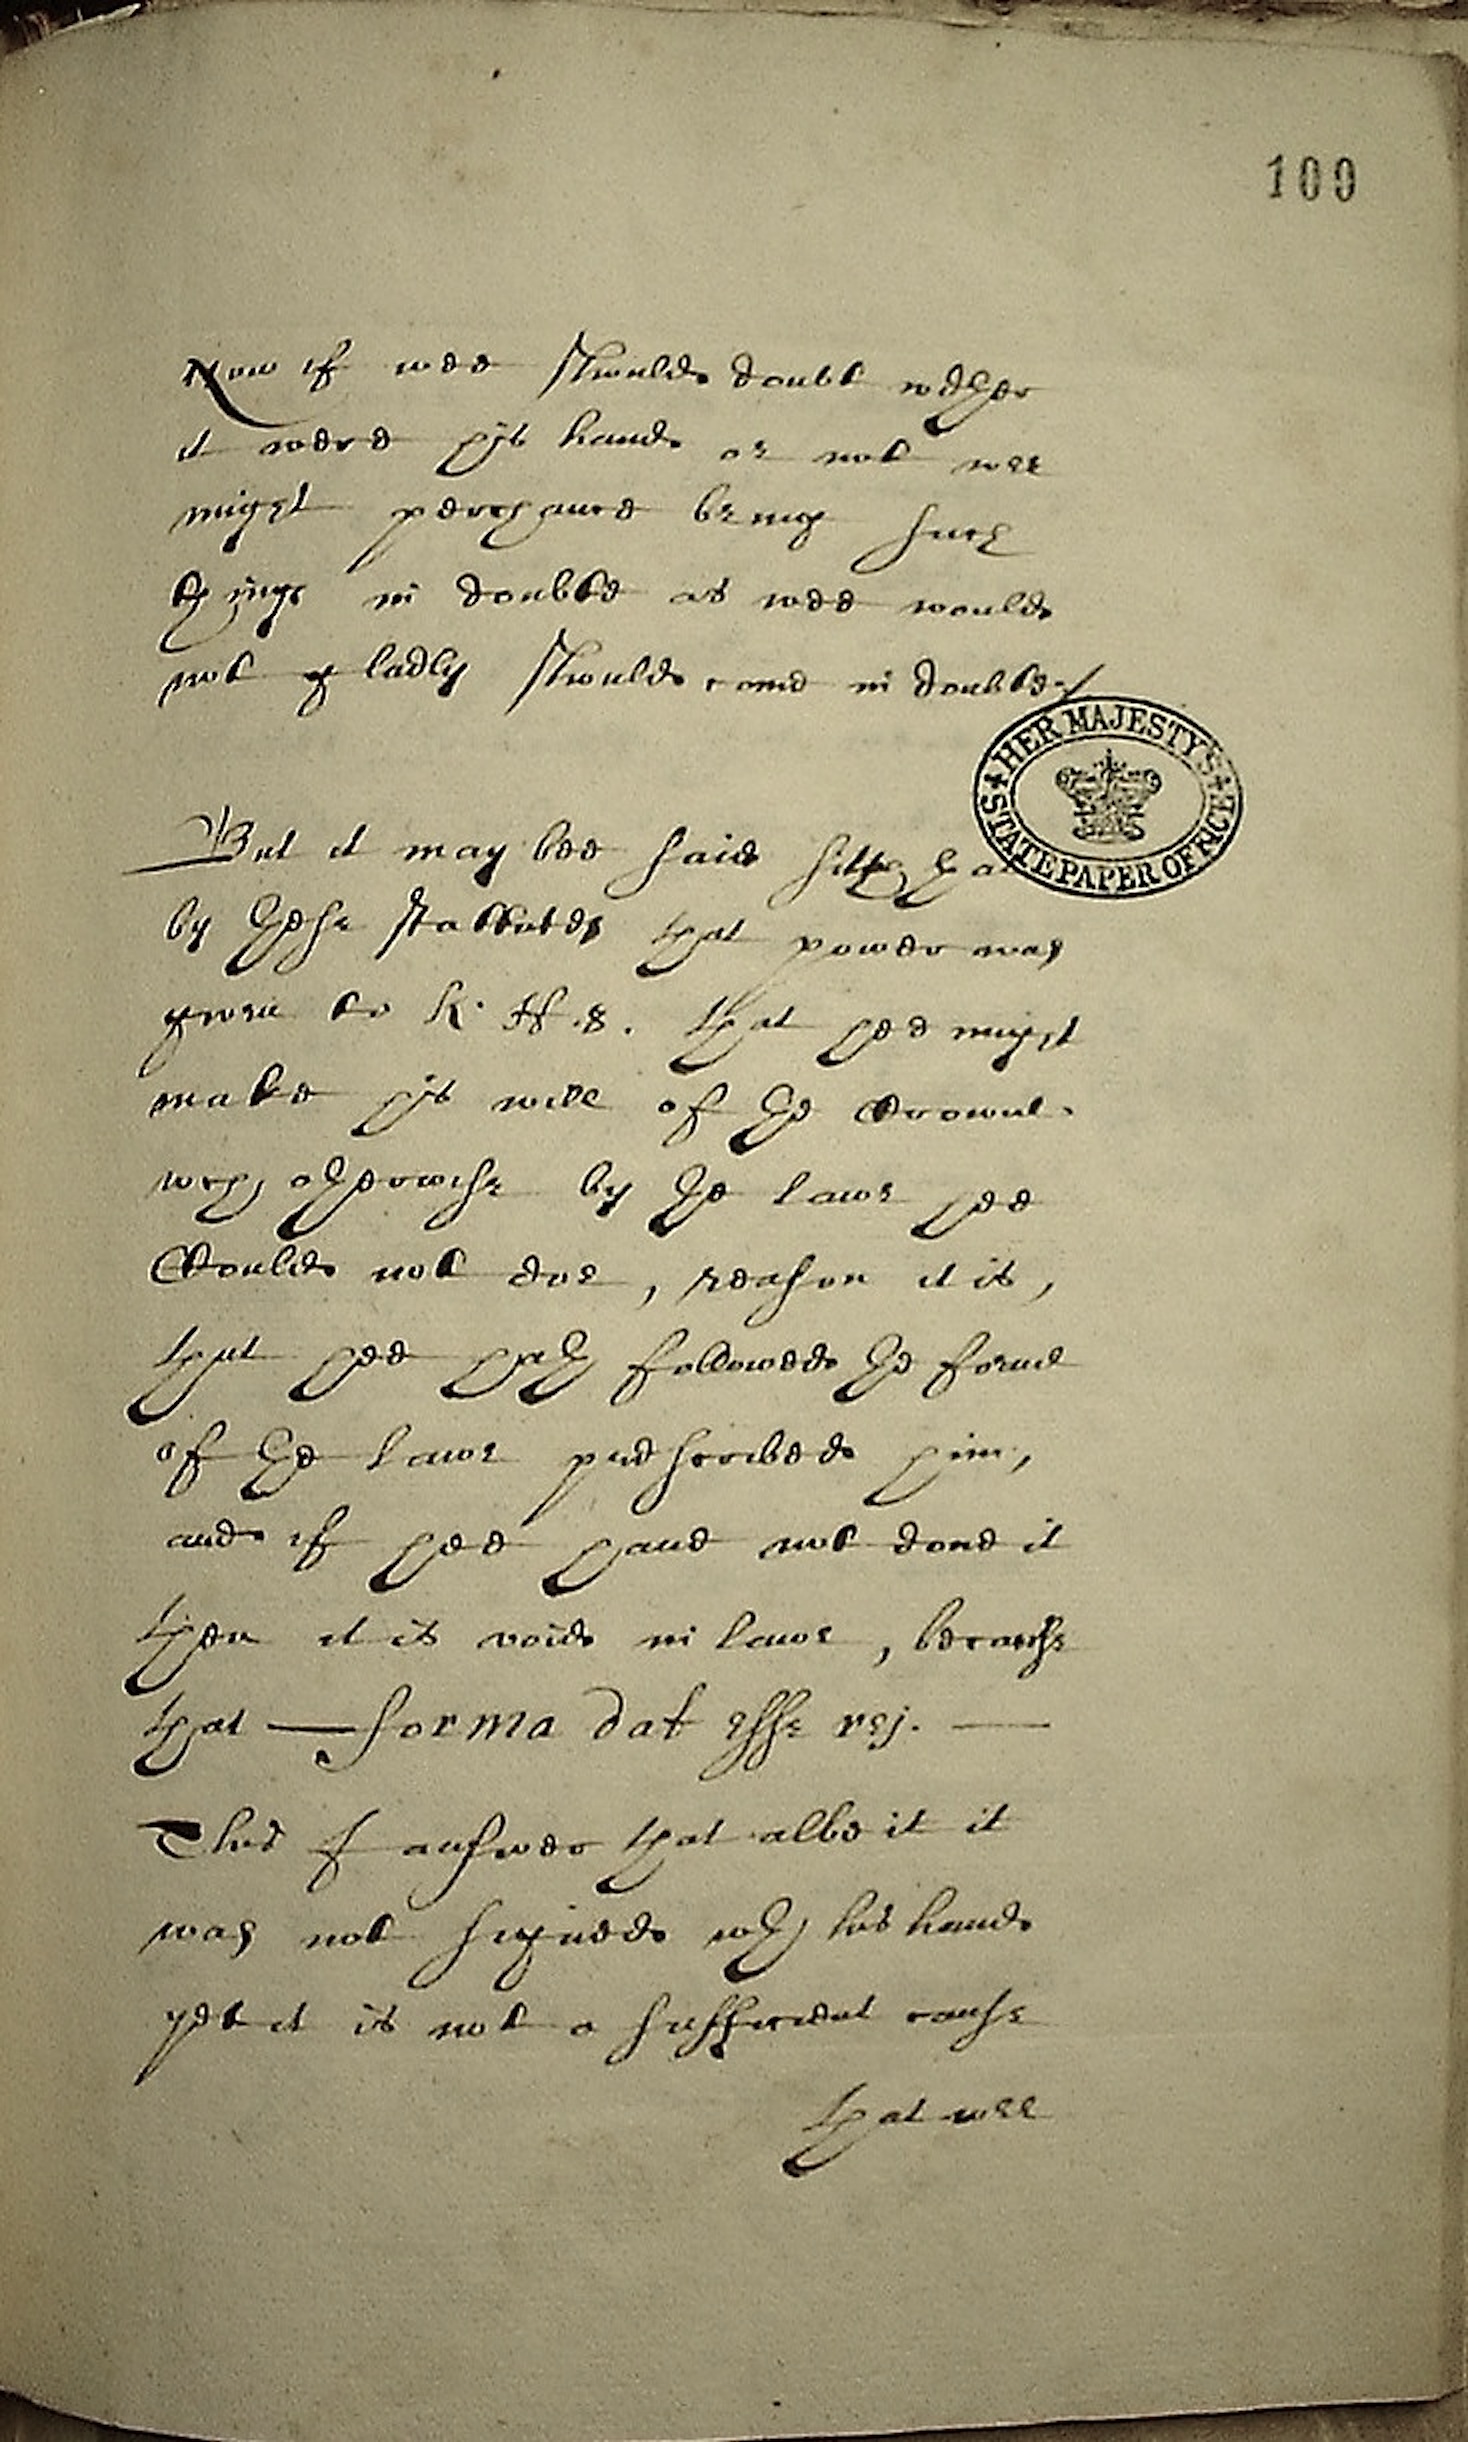 109
Now if wee should doubt whether
it were his hand or not wee
might perchance bring such
things in doubte as wee would
not gladly should come in doubte /
HER MAJESTY'S STATE PAPER OFFICE
But it may bee said sith that
by these statutes that power was
given to K. H. 8. that hee might
make his will of the Crowne
wch otherwise by the lawe hee
Could not doe, reason it is,
that hee hath followed the forme
of the lawe prescribed him,
and if hee have not done it
then it is void in lawe, because
that — forma dat esse rej. —
This I answer that albeit it
was not signed wth his hand
yet it is not a sufficient cause
that wee